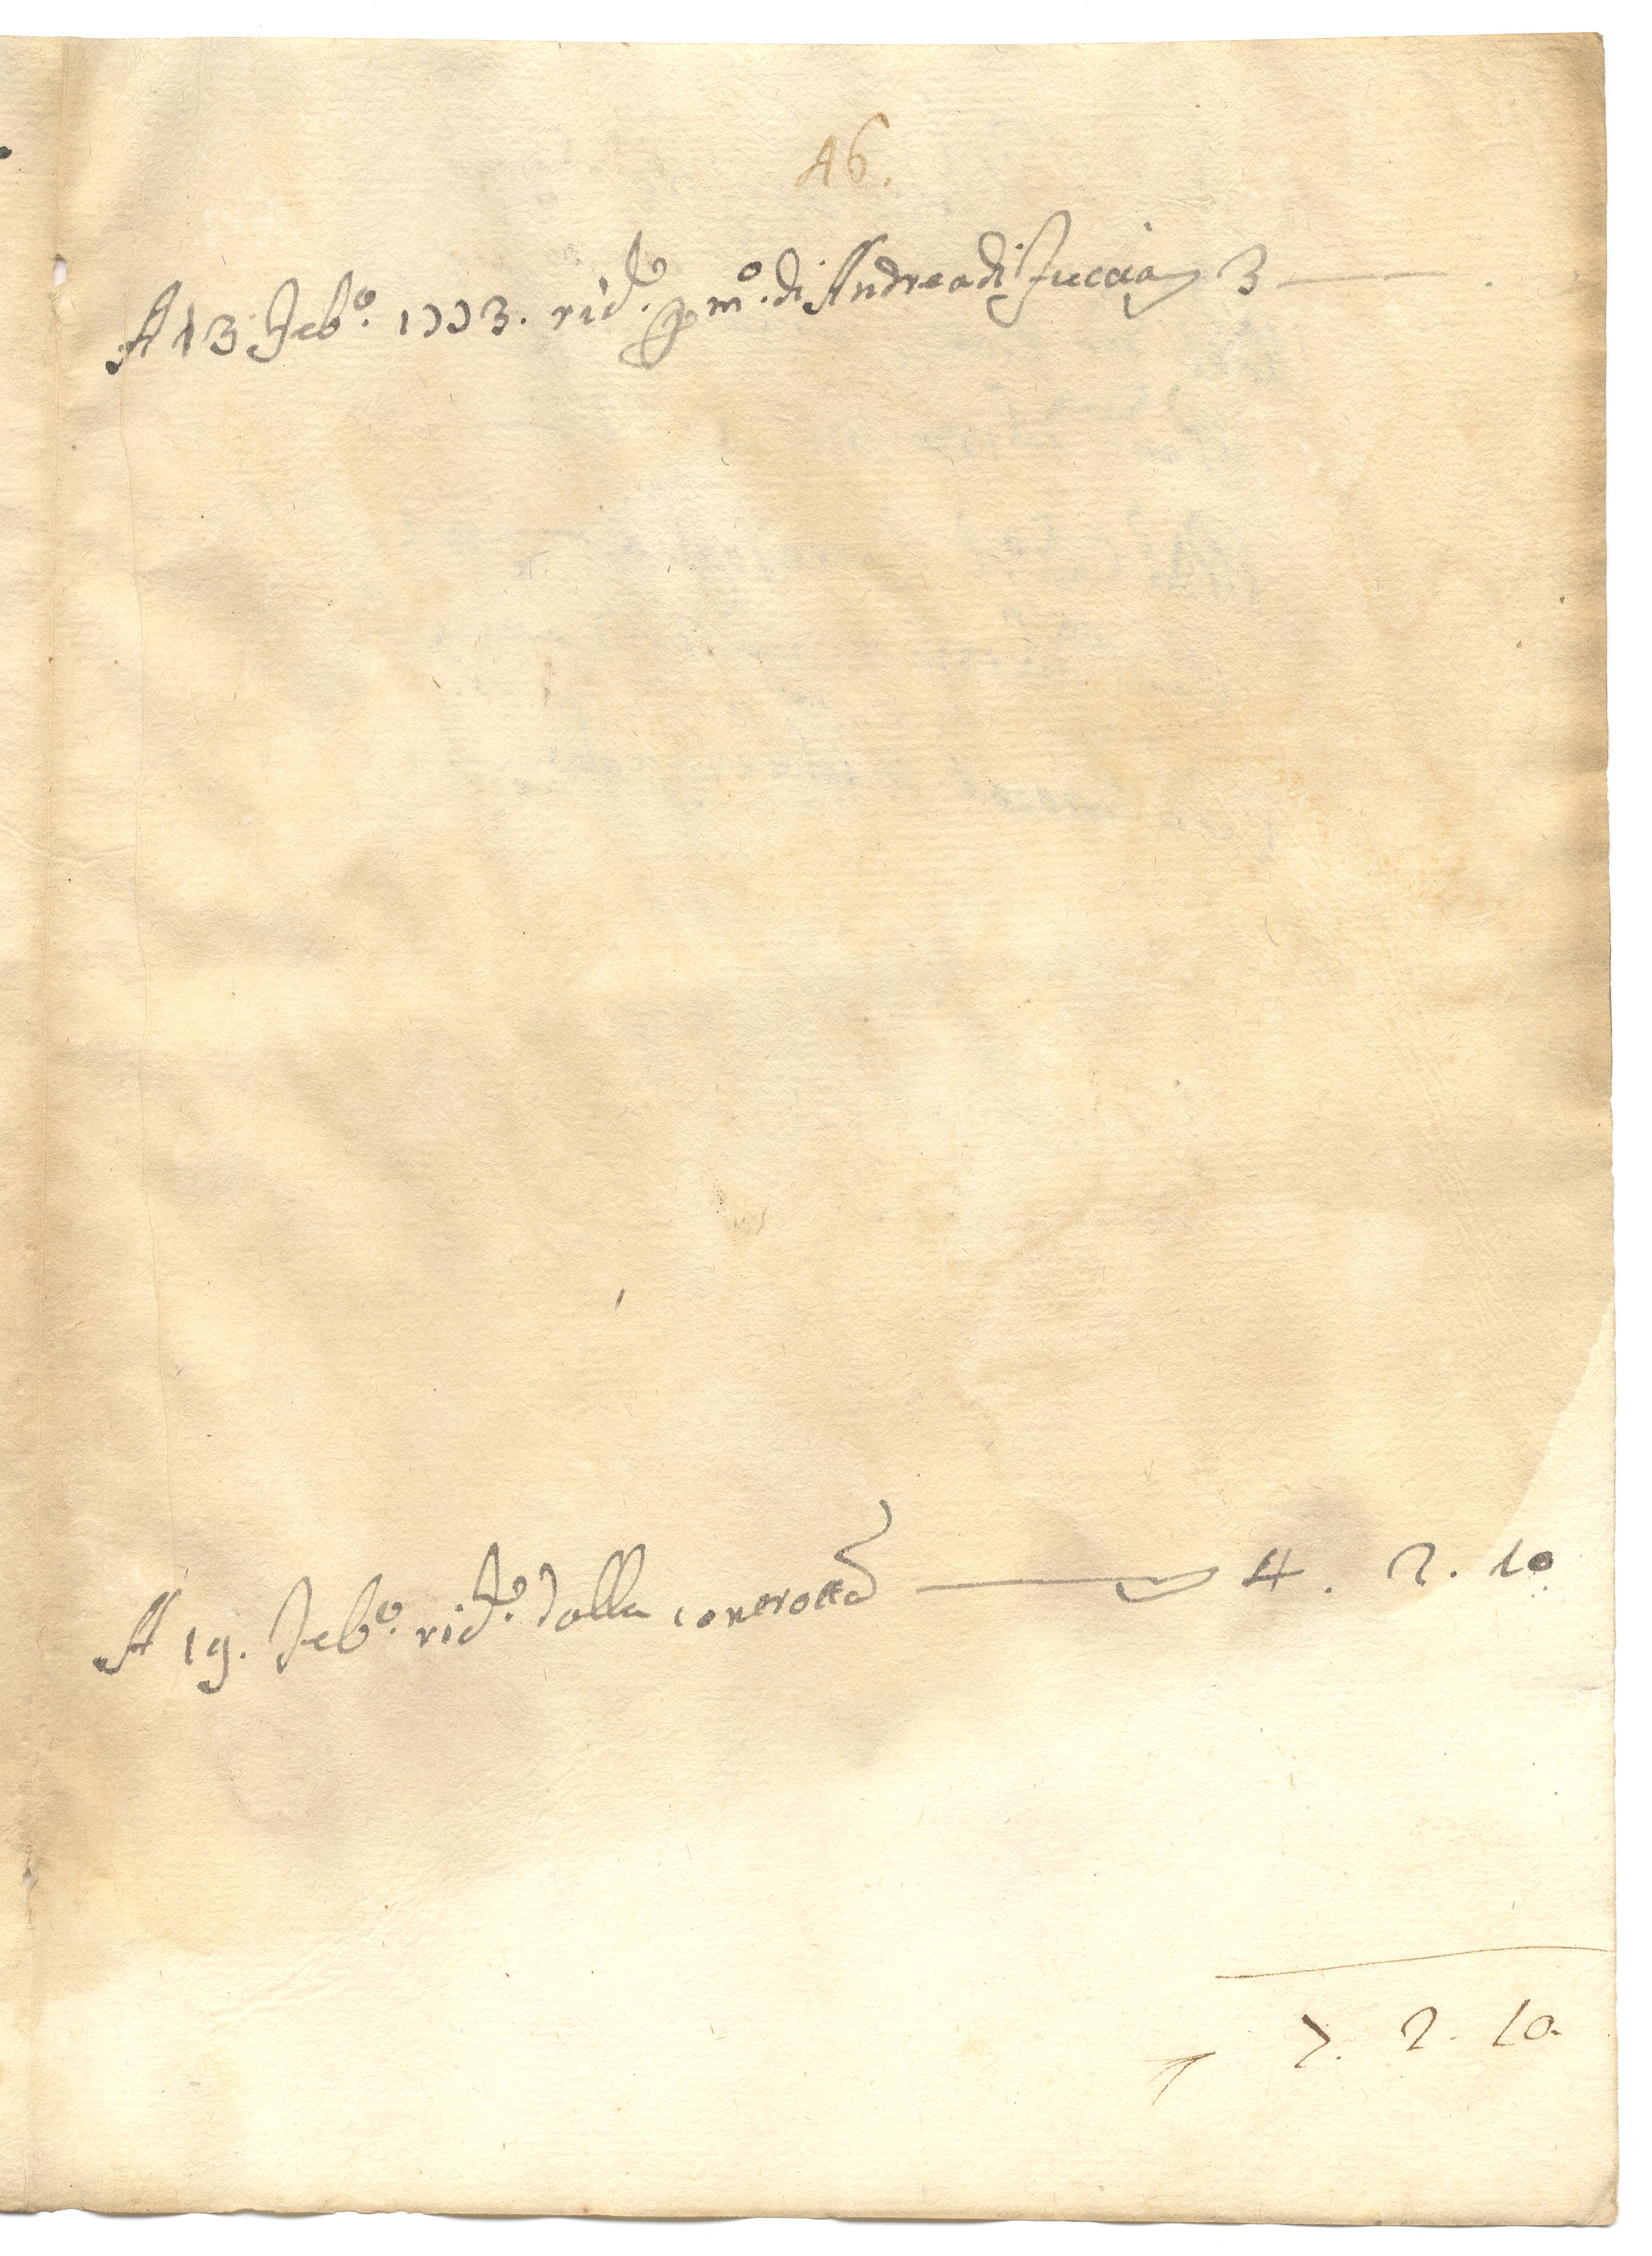 46.
A 13 Feb.º 1773. rid.º p m.º di Andrea di Fuccia 3
A 19. Feb.º rid.º dalla 4. 2. 10
7. 2. 10.